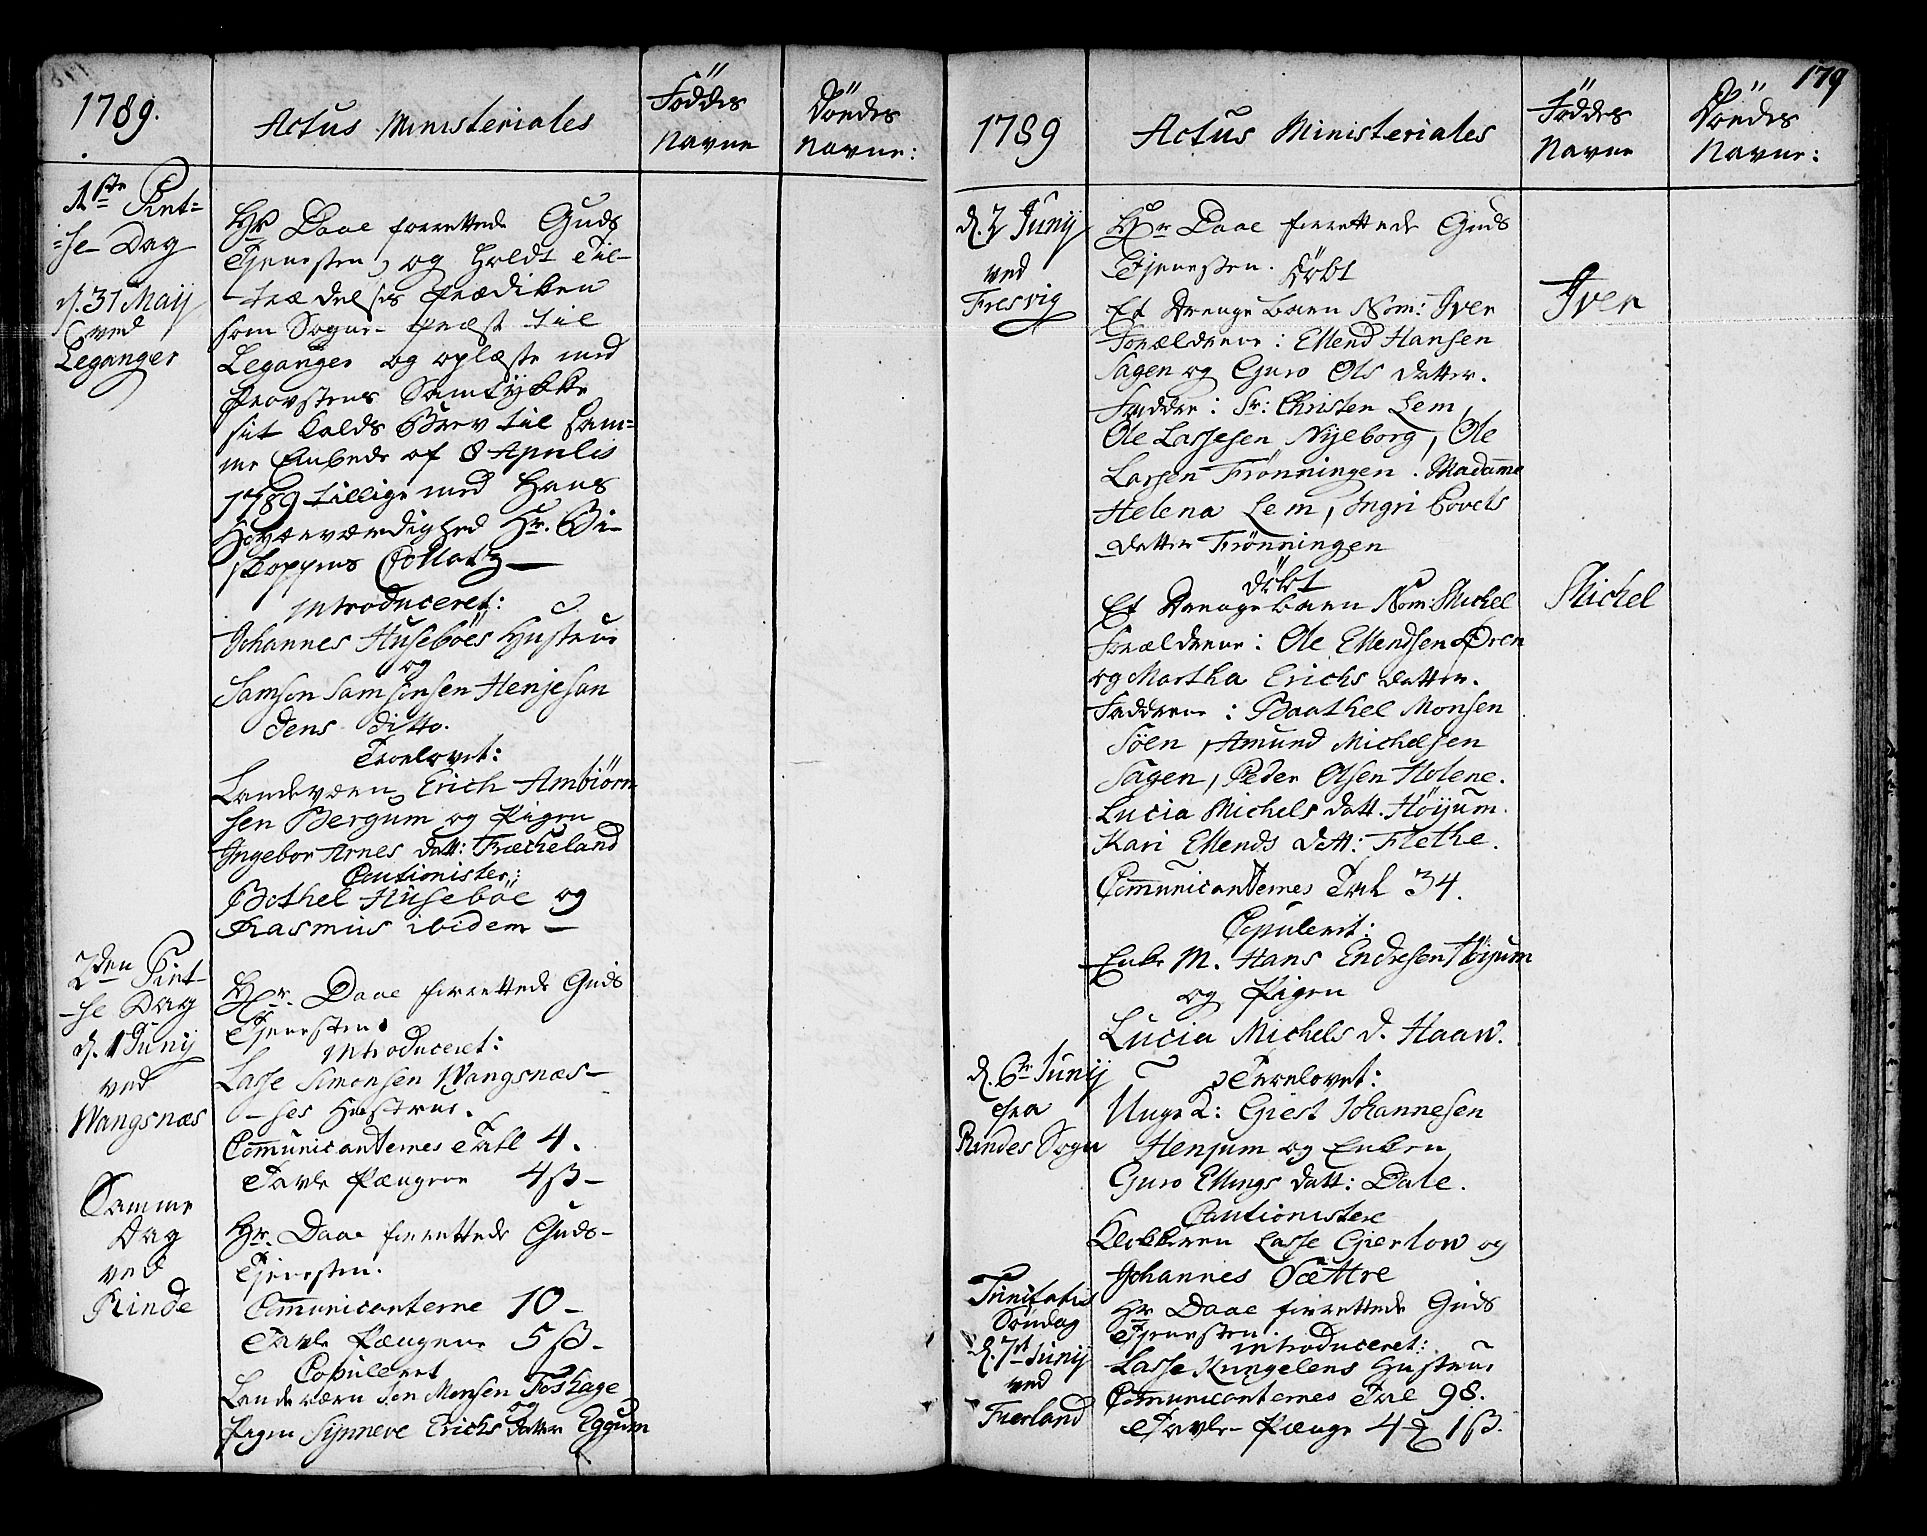 1789.
Actus Ministeriales
Föddes
Navne
Döedes
Navne:
1ste Pint-
-se Dag
d. 31 Maij
ved
Leganger
Hr Daae forrettede Guds
Tjenesten, og holdt Til-
trædelses Prædiken
som Sogne-Præst til
Leganger og oplæste med
Provstens Samtykke
sit Kalds Brev til sam-
me Embede af 8 Aprilis
1789 tillige med Hans
Höyærværdighed Hr. Bi-
skoppens Collatz
Introduceret:
Johannes Huseböes Hustrue
og
Samson Samsonsen Henjesan
dens ditto.
Troelovet:
Landeværn Erich Ambiörn
sen Bergum og Pigen
Ingebor Arnes datt: Fræcheland
Cautionister:
Bothel Huseböe og
Rasmus ibidem
2den Pint-
-se Dag
d. 1 Junij
ved
Wangsnæs
Hr. Daae forrettede Guds
Tjenesten.
Introduceret:
Lasse Simonsen Wangsnæs-
-ses Hustrue.
Communicanternes Tall 4.
Tavle Pængene 4 ß
Samme
Dag
ved
Rinde
Hr. Daae forrettede Guds-
Tjenesten.
Communicanterne 10
Tavle Pængene 5 ß
Copuleret
Landeværn Jon Monsen Foshage
og
Pigen Synneve Erichs datter Eggum
179
1789
Actus Ministeriales
Föddes
Navne
Döedes
Navne:
d. 2 Junij
ved
Fresvig
Hr Daae forrettede Guds
Tjenesten.
Döbt
Et Drenge barn Nom: Iver
Iver
Forældrene: Ellend Hansen
Sagen og Guro Ols datter.
Faddre: Sr: Christen Lem,
Ole Lassesen Nyeborg, Ole
Larsen Frönningen. Madamme
Helena Lem, Ingri Bovels
datter Frönningen
Döbt
Et Drenge barn Nom: Michel
Michel
Forældrene: Ole Ellendsen Ören
og Martha Erichs datter.
Faddrene: Baathel Monsen
Söen, Amund Michelsen
Sagen, Peder Olsen Holene.
Lucia Michels datt. Höijum.
Kari Ellends datt: Flethe.
Communicanternes Tal 34.
Copuleret:
Enke M. Hans Endresen Höijum
og Pigen
Lucia Michels d. Haaw.
d. 6te Junij
fra
Rindes Sogn
Troelovet:
Unge K: Giest Johannesen
Henjum og Enken
Guro Ellings datt: Dale.
Cautionistere
Klokkeren Lasse Giertow og
Johannes Sættre
Trinitatis
Söndag
d. 7de Junij
ved
Fierland
Hr Daae forrettede Guds
Tjenesten.
Introduceret:
Lasse Kungelens Hustrue
Communicanternes Tal 98.
Tavle-Pænge 4 ß 1 ß.